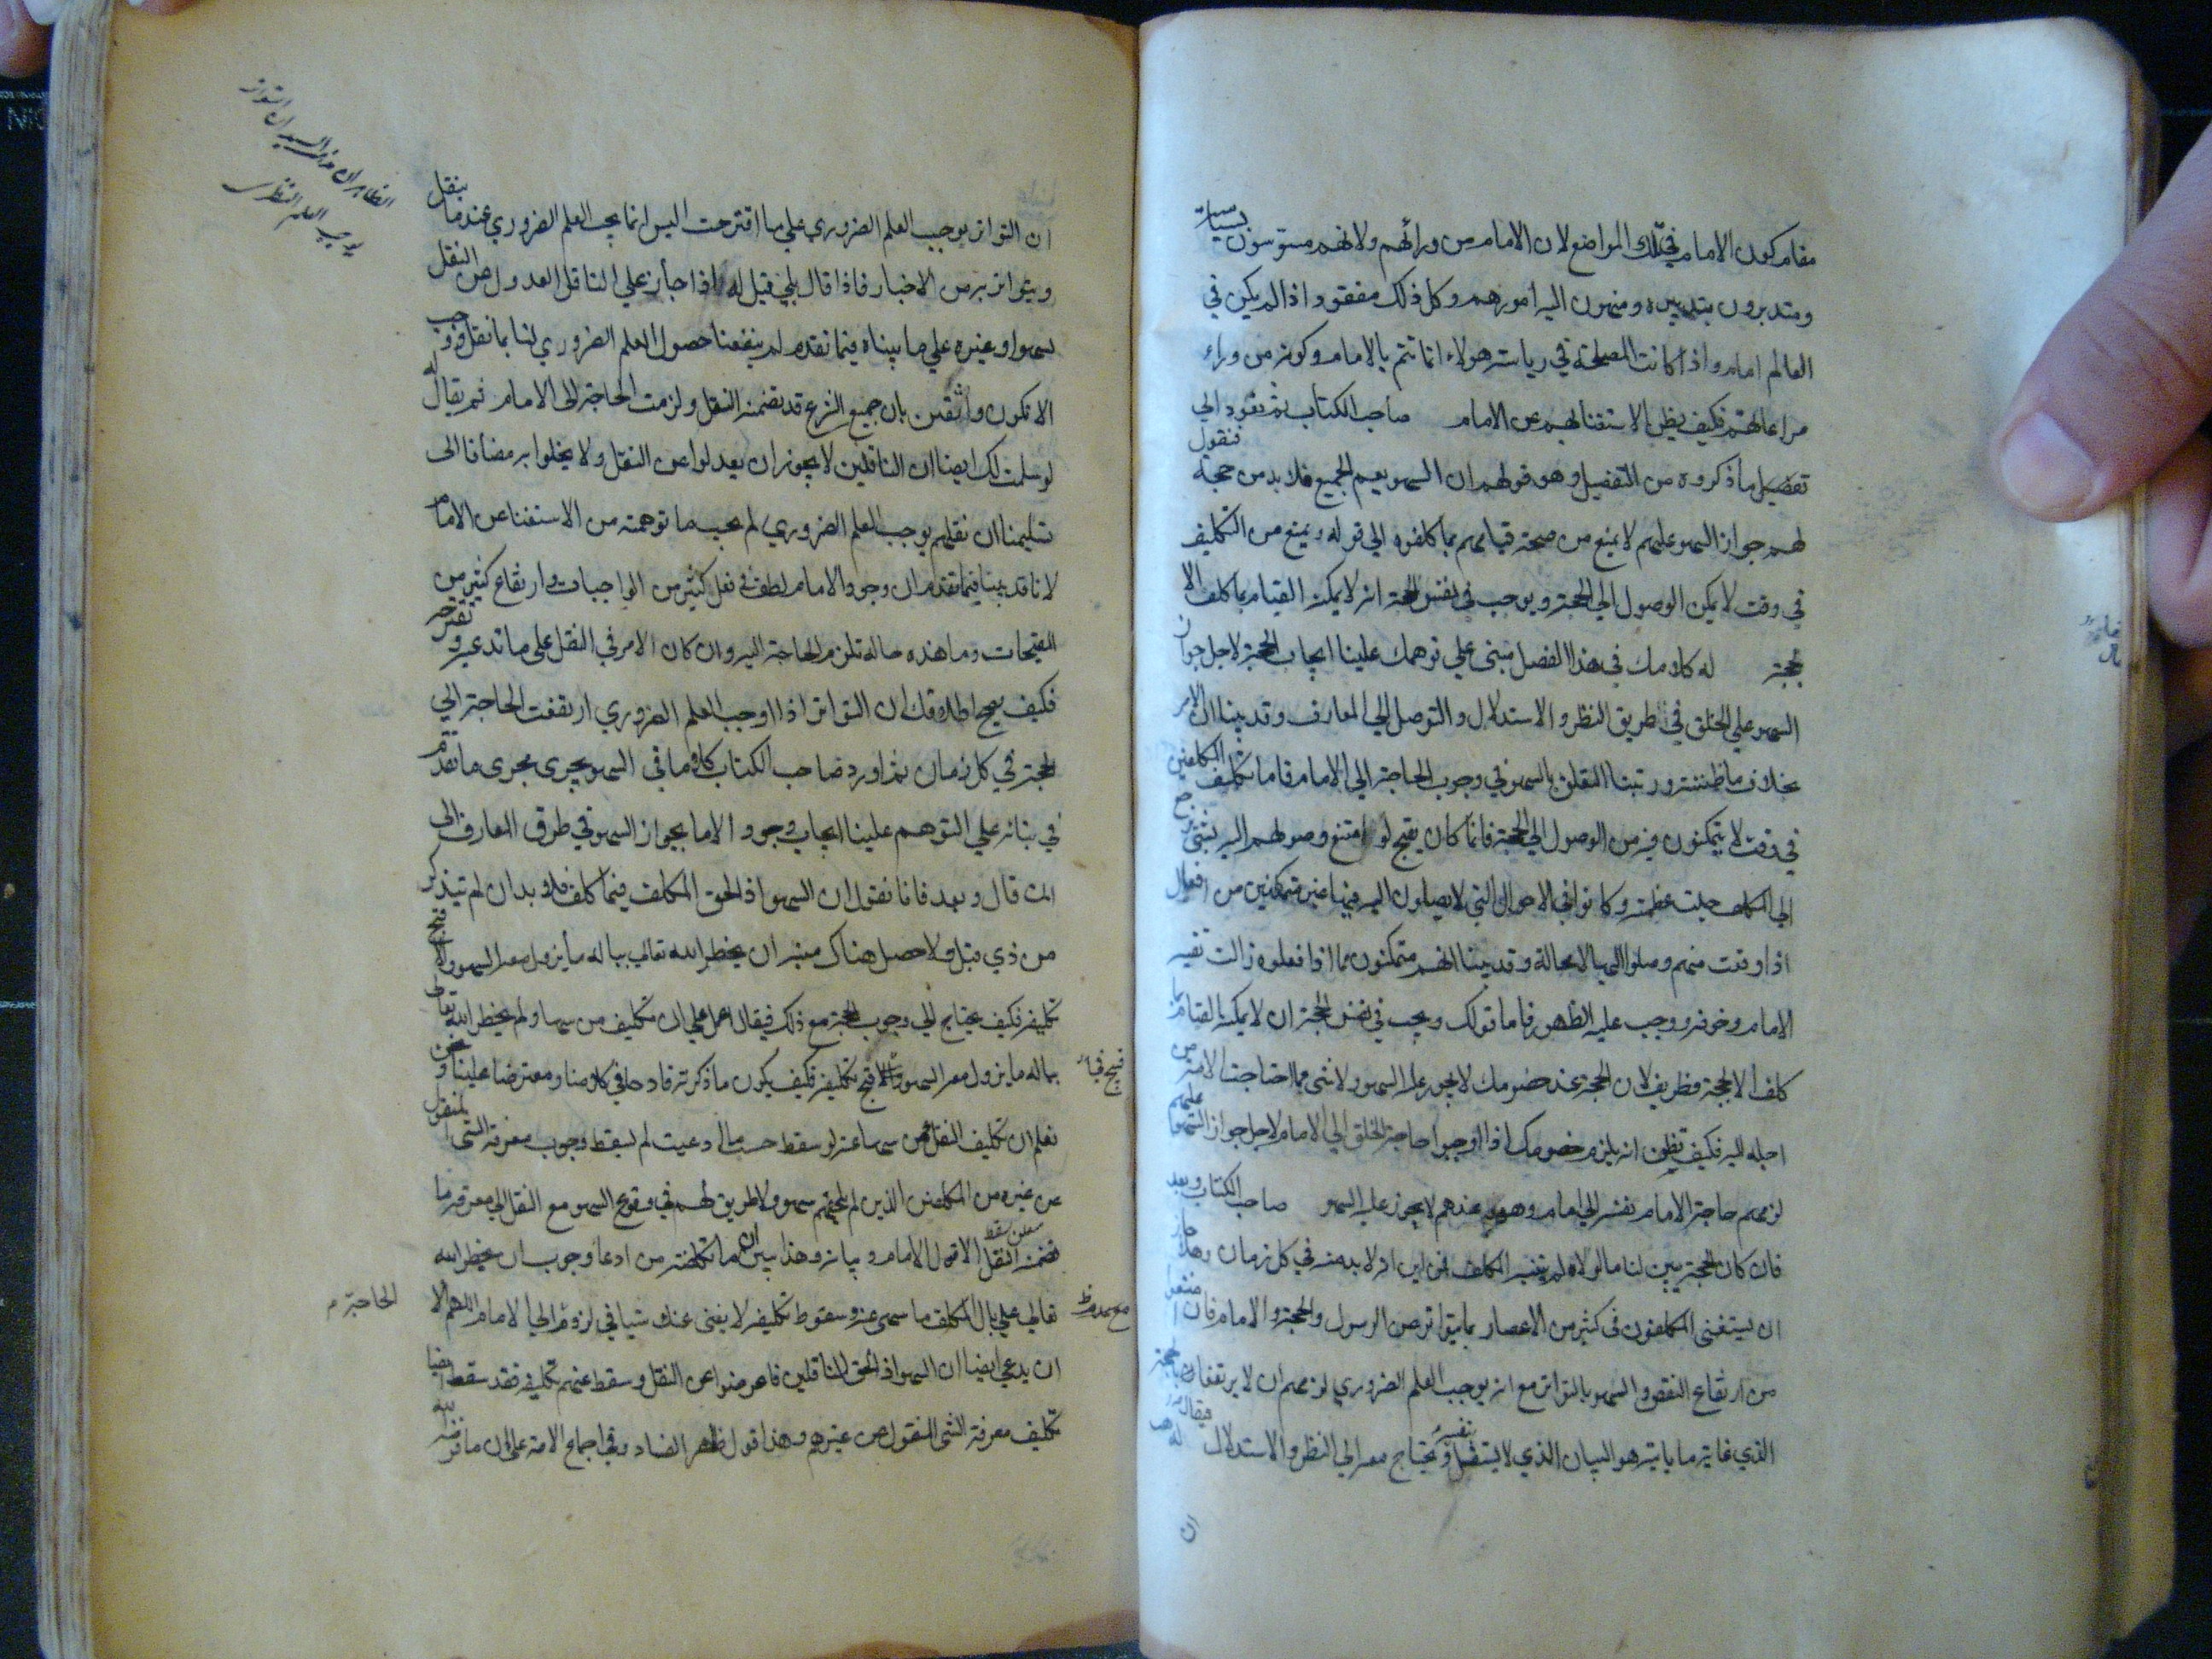 مقام كون الامام في تلك المواضع لان الامام من ورائهم ولانهم مسوسون بسياسته
ومتدبرون بتدبيره ومنهون اليه امورهم وكل ذلك مفقود اذا لم يكن في
العالم امام واذا كانت المصلحة في رياسة هولاء انما تتم بالامام وكونه من وراء
مراعاتهم فكيف يظن الاستغنا بهم عن الامام صاحب الكتاب ثم نعود الي
تفصيل ما ذكروه من التفصيل وهو قولهم ان السهو يعم الجميع فلا بد من حجة فنقول
لهم جواز السهو عليهم لا يمنع من صحة قيامهم بما كلفوه الي قوله ويمنع من التكليف
في وقت لا يمكن الوصول الي الحجة ويوجب في نفس الحجة انه لا يمكنه القيام بما كلف الا
بحجة له كلامك في هذا الفصل مبني علي توهمك علينا ايجاب الحجة لاجل جواز
السهو علي الخلق في طريق النظر والاستدلال والتوصل الي المعارف وقد بينا ان الامر
بخلاف ما ظننته ورتبنا التعلق بالسهو في وجوب الحاجة الي الامام فاما تكليف المكلفين
في وقت لا يتمكنون فيه من الوصول الي الحجة فانما كان يقبح لو امتنع وصولهم اليه بشئ يرجع
الي المكلف جلت عظمته وكانوا في الاحوال التي لا يصلون اليه فيها غير متمكنين من افعال
اذا وقعت منهم وصلوا اليه لا محالة وقد بينا انهم متمكنون مما اذا فعلوه زالت تقية
الامام وخوفه ووجب عليه الظهور فاما قولك ويجب في نفس الحجة ان لا يمكنه القيام بما
كلف الا بحجة فظريف لان الحجة عند خصومك لا يجوز عليه السهو ولا شي مما احتاجت الامة من
اجله اليه فكيف تظن انه يلزم خصومك اذا اوجبوا حاجة الخلق الي الامام لاجل جواز السهو عليهم
لزمهم حاجة الامام نفسه الي امام وهو عندهم لا يجوز عليه السهو صاحب الكتاب وبعد
فان كان الحجة يبين لنا ما لولاه لم يتبين المكلف فمن اين انه لا بد منه في كل زمان وهلا جاز
ان يستغني المكلفون في كثير من الاعصار بما يتواتر عن الرسول والحجة والامام فان منعوا
من ارتفاع النقص والسهو بالتواتر مع انه يوجب العلم الضروري لزمهم ان لا يرتفعا بالحجة
الذي غاية ما ياتيه هو البيان الذي لا يستقل بنفسه ويحتاج معه الي النظر والاستدلال فيقال له هب
ان
ان التواتر يوجب العلم الضروري علي ما اقترحت اليس انما يجب العلم الضروري عندما ينقل
ويتواتر به من الاخبار فاذا قال بلي قيل له اذا جاز علي الناقل العدول عن النقل
لسهو او غيره علي ما بيناه فيما تقدم لم ينفعنا حصول العلم الضروري لنا بما نقل ووجب
الا نكون واثقين بان جميع الشرع قد تضمنه النقل ولزمت الحاجة الى الامام ثم يقال له
لو سلمت لك ايضا ان الناقلين لا يجوز ان يعدلوا عن النقل ولا يخلوا به مضافا الى
تسليمنا ان نقلهم يوجب العلم الضروري لم يجب ما توهمته من الاستغنا عن الامام
لانا قد بينا فيما تقدم ان وجود الامام لطف في فعل كثير من الواجبات وارتفاع كثير من
القبيحات وما هذه حاله تلزم الحاجة اليه وان كان الامر في النقل على ما تدعيه وتقترحه
فكيف يصح اطلاقك ان التواتر اذا اوجب العلم الضروري ارتفعت الحاجة الي
الحجة في كل زمان ثم اورد صاحب الكتاب كلاما في السهو يجري مجرى ما تقدم
في بنائه علي التوهم علينا ايجاب وجود الامام بجواز السهو في طرق المعارف الى
ان قال وبعد فانا نقول ان السهو اذا لحق المكلف فيما كلف فلا بد ان لم يتذكر
من ذي قبل ولا حصل هناك منبه ان يخطر الله تعالي بباله ما يزول معه السهو والا قبح
تكليفه فكيف يحتاج الي وجوب الحجة مع ذلك فيقال اعمل علي ان تكليف من سها ولم يخطر الله تعالي
بباله ما يزول معه السهو والا قبح تكليفه فكيف يكون ما ذكرته قادحا في كلامنا ومعترضا علينا ونحن
نعلم ان تكليف النقل عمن سها عنه لو سقط حسب ما ادعيت لم يسقط وجوب معرفة الشي المنقول
عن غيره من المكلفين الذين لم يلحقهم سهو ولا طريق لهم في وقوع السهو مع النقل الي معرفة ما
تضمنه النقل الا قول الامام وبيانه وهذا يبين ان ما تكلفته من ادعا وجوب ان يخطر الله
تعالي علي بال المكلف ما سهى عنه وسقوط تكليفه لا يغني عنك شيا في لزوم الي الامام اللهم الا
ان يدعي ايضا ان السهو اذا لحق الناقلين فاعرضوا عن النقل وسقط عنهم تكليفه فقد سقط ايضا
تكليف معرفة الشي المنقول عن غيرهم وهذا قول ظاهر الفساد وفي اجماع الامة علي ان ما فرضه الله
الظاهر ان مذهب السيد ان التواتر
يوجب العلم النظري
الحاجة م